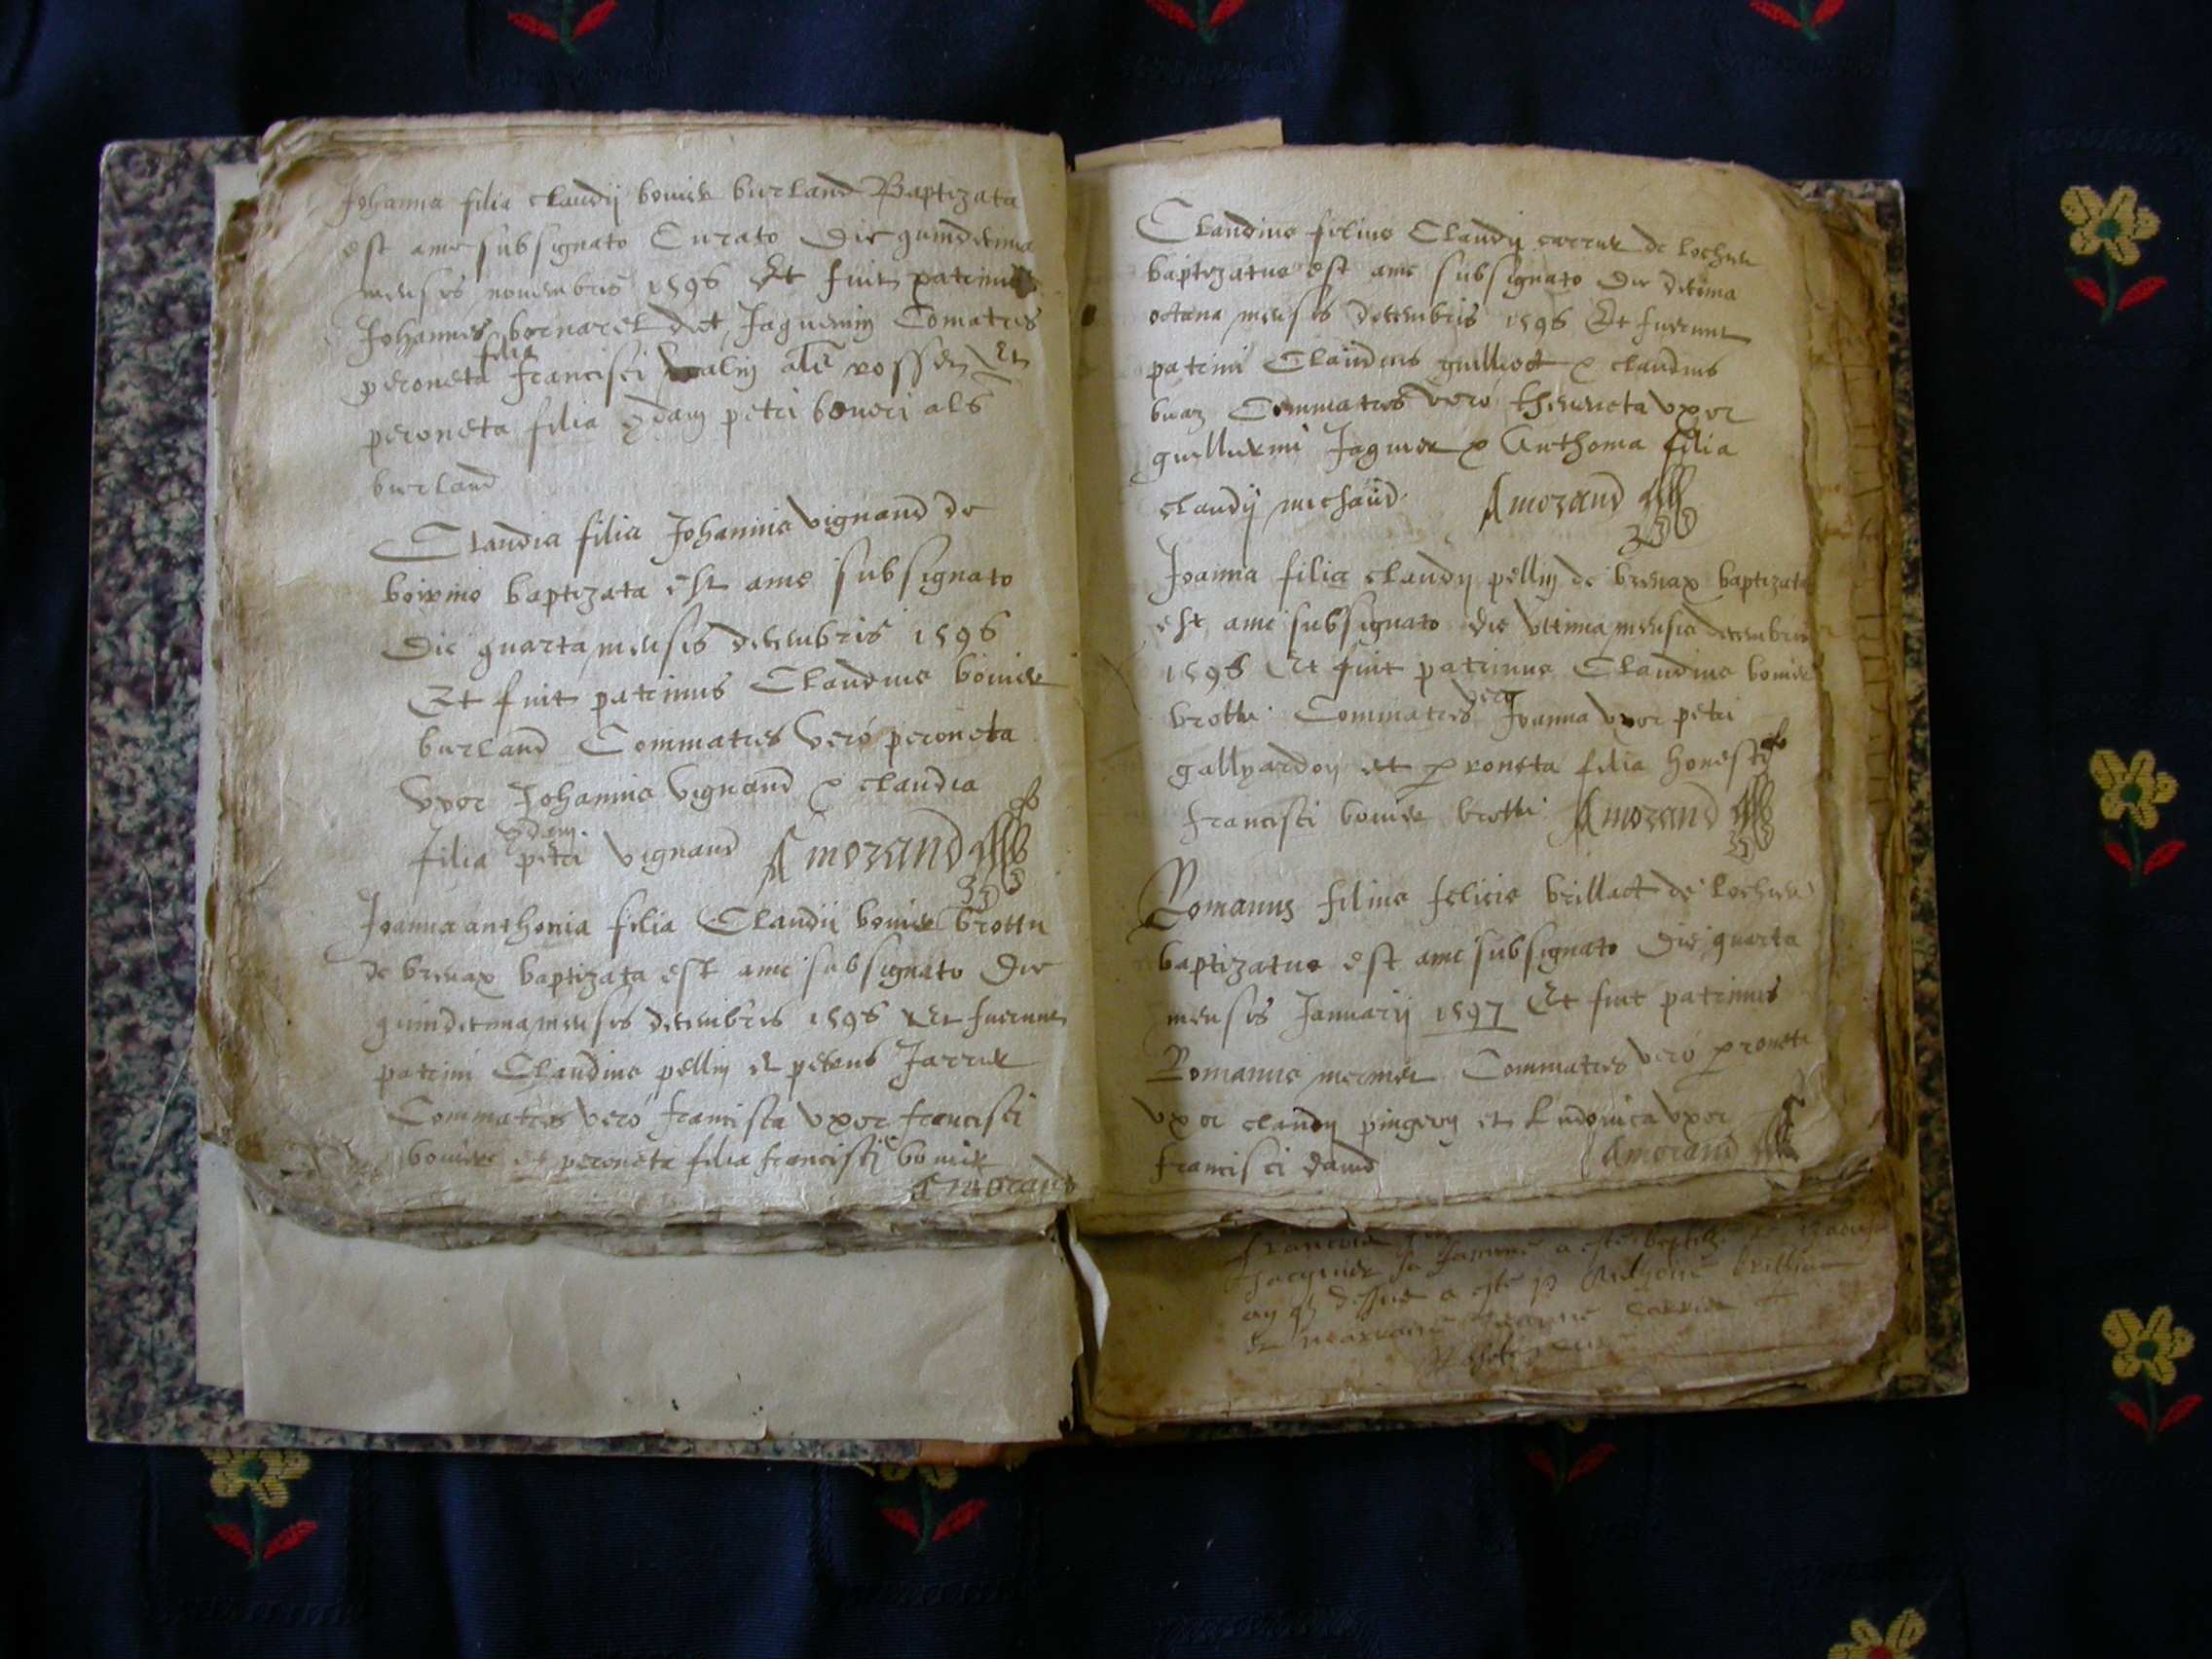 Johanna filia claudij bouier burland Baptizata
est ame subsignato Curato Die quindecima
mensis nouembris 1596 Et fuit patrinus
Johannes bornarel det Jaquemin Comatres
peroneta filia francisci alīs rosset Et
peroneta filia qdam petri boueri als
burland
Claudia filia Johannis vignand de
boirino baptizata est ame subsignato
Die quarta mensis decembris 1596
Et fuit patrinus Claudius bouier
burland Commatres vero peroneta
vxor Johannis vignand & claudia
filia qdam petri vignand Amorand
Joanna anthonia filia Claudii bouier brottu
de brenax baptizata est ame subsignato Die
quindecima mensis decembris 1596 Et fuerunt
patrini Claudius pellin et petrus Jarrier
Commatres vero francisca vxor francisci
bouier et peroneta filia francisci bouier
Amorand
Claudius filius Claudij carrier de lochieu
baptizatus est ame subsignato Die decima
octaua mensis decembris 1596 Et fuerunt
patrini Claudius guilliod & claudius
buaz Commatres vero theueneta vxor
guillermi Jaquier & Anthonia filia
claudij michaud Amorand
Joanna filia claudij pellin de brenax baptizata
est ame subsignato die vltima mensis decembris
1596 Et fuit patrinus Claudius bouier
brottu Commatres vero Joanna vxor petri
gallyardon et peroneta filia honesti
francisci bouier brottu Amorand
Romanus filius felicis brillact de lochieu
baptizatus est ame subsignato Die quarta
mensis Januarij 1597 Et fuit patrinus
Romanus mermet Commatres vero peroneta
vxor claudij pingeon et Ludouica vxor
francisci dauid Amorand
francoise
Jacquier sa famme a este baptizé
an q dessus a este p Anthoine brillian
et marraine Jeanne Carrier